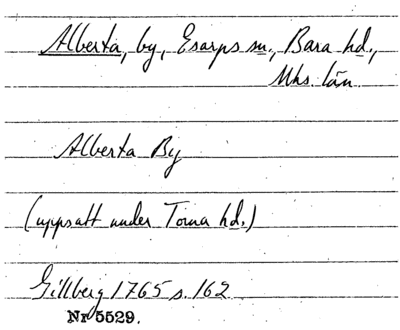 Alberta, by, Esarps sn., Bara hd.,
Mhs. län
Alberta By
(uppsatt under Torna hd.)
Gillberg 1765 s. 162
Nr 5529.